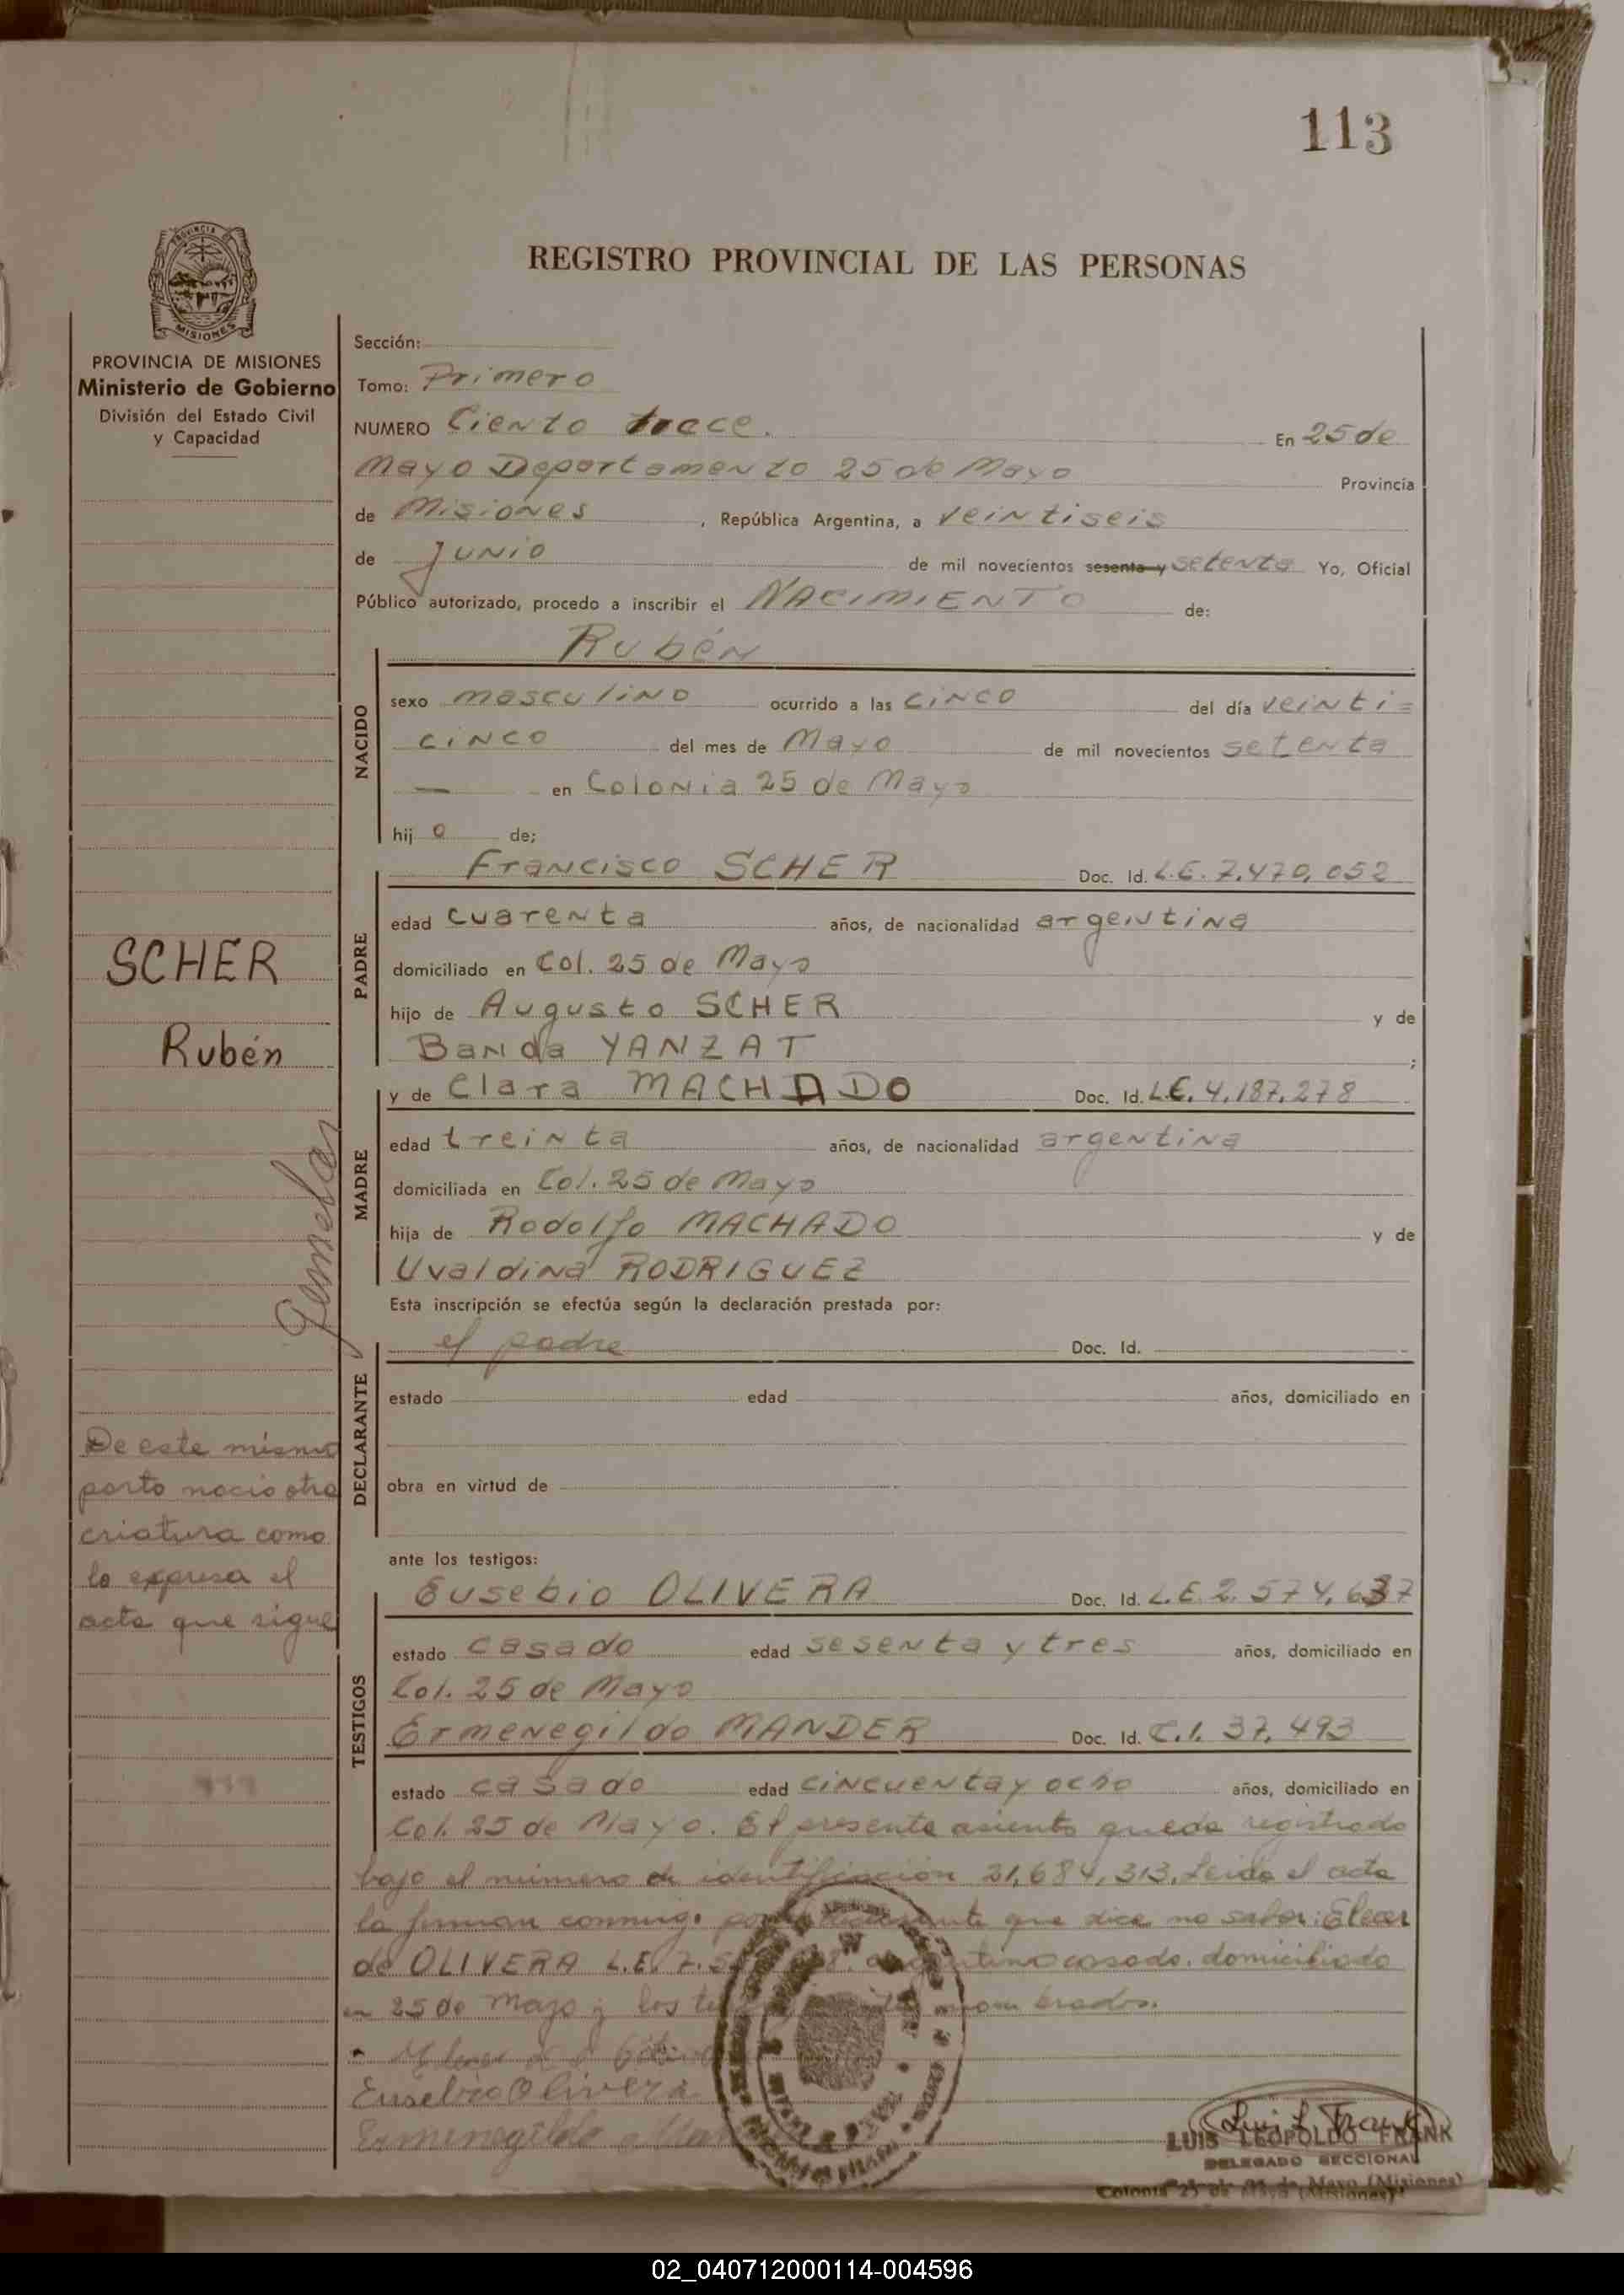 113
REGISTRO PROVINCIAL DE LAS PERSONAS
PROVINCIA DE
MISIONES
PROVINCIA DE MISIONES
Ministerio de Gobierno
División del Estado Civil
y Capacidad
Sección:
Tomo: Primero
NUMERO Ciento trece. En 25 de
Mayo Departamento 25 de Mayo Provincia
de Misiones, República Argentina, a veintiseis
de Junio de mil novecientos sesenta y setenta Yo, Oficial
Público autorizado, procedo a inscribir el NACIMIENTO de:
Rubén
NACIDO
sexo masculino ocurrido a las cinco del día veinti=
cinco del mes de Mayo de mil novecientos setenta
— en Colonia 25 de Mayo
hij o de;
Francisco SCHER Doc. Id. L.E. 7.470,052
PADRE
edad cuarenta años, de nacionalidad argentina
domiciliado en Col. 25 de Mayo
hijo de Augusto SCHER y de
Banda YANZAT ;
y de Clara MACHADO Doc. Id. L.E. 4,187,278
MADRE
edad treinta años, de nacionalidad argentina
domiciliada en Col. 25 de Mayo
hija de Rodolfo MACHADO y de
Uvaldina RODRIGUEZ
Esta inscripción se efectúa según la declaración prestada por:
el padre Doc. Id.
DECLARANTE
estado edad años, domiciliado en
obra en virtud de
ante los testigos:
Eusebio OLIVERA Doc. Id. L.E. 2.574,637
TESTIGOS
estado casado edad sesenta y tres años, domiciliado en
Col. 25 de Mayo
Ermenegildo MANDER Doc. Id. C.I. 37,493
estado casado edad cincuenta y ocho años, domiciliado en
Col. 25 de Mayo. El presente asiento queda registrado
bajo el número de identificación 21,684,313. Leida el acta
la firman conmigo que dice no saber: Elecer
de OLIVERA L.E. 7.5 casado. domiciliado
en 25 de Mayo y los
Eusebio Olivera
Ermenegildo
Luis L. Frank
LUIS LEOPOLDO FRANK
DELEGADO SECCIONAL
Colonia 25 de Mayo (Misiones)
SCHER
Rubén
Gemelar
De este mismo
parto nacio otra
criatura como
lo expresa el
acta que sigue
02_040712000114-004596